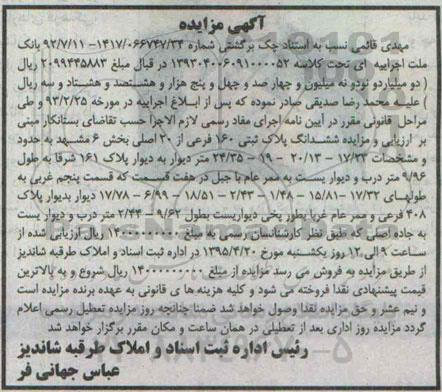 آگهی مزایده
مهدی قائمی نسب به استناد چک برگشتی شماره ۱۴۱۷/۰۶۶۷۴۷/۳۴- ۹۲/۷/۱۱ بانک
ملت اجراییه ای تحت کلاسه ۱۳۹۳۰۴۰۰۶۰۹۱۰۰۰۰۵۲ در قبال مبلغ ۲۰۹۹۴۴۵۸۸۳ ریال
( دو میلیاردو نودو نه میلیون و چهار صد و چهل و پنج هزار و هشتصد و هشتاد و سه ریال
) علیه محمد رضا صدیقی صادر نموده که پس از ابلاغ اجراییه در مورخه ۹۳/۲/۲۵ و طی
مراحل قانونی مقرر در آیین نامه اجرای مفاد رسمی لازم الاجرا حسب تقاضای بستانکار مبنی
بر ارزیابی و مزایده ششدانگ پلاک ثبتی ۱۶۰ فرعی از ۲۰ اصلی بخش ۶ مشهد به حدود
و مشخصات ۱۷/۳۳ - ۲۰/۱۳ - ۱۹ - ۲۴/۳۵ متر دیوار به دیوار پلاک ۱۶۱ شرقا به طول
۹/۹۶ متر درب و دیوار یست به ممر عام با جبل در هفت قسمت که قسمت پنجم غربی به
طولهای ۱۷/۳۲ -۱۵/۸۱ - ۱/۴۸ - ۲/۴۳ - ۱۸/۵۱ - ۶/۹۹ - ۱۷/۷۸ دیوار بدیوار پلاک
۴۰۸ فرعی و ممر عام غربا بطور پخی دیواریست بطول ۹/۶۲ - ۲/۴۴ متر درب و دیوار یست
به جاده اصلی که طبق نظر کارشناسان رسمی به مبلغ ۱۴۰۰۰۰۰۰۰۰۰ ریال ارزیابی شده از
ساعت ۹ الی ۱۲ روز یکشنبه مورخ ۱۳۹۵/۴/۲۰ در اداره ثبت اسناد و املاک طرقبه شاندیز
از طریق مزایده به فروش می رسد مزایده از مبلغ ۱۴۰۰۰۰۰۰۰۰۰ ریال شروع و به بالاترین
قیمت پیشنهادی نقدا فروخته می شود و کلیه هزینه ها ی قانونی به عهده برنده مزایده است
و نیم عشر و حق مزایده نقدا وصول خواهد شد ضمنا چنانچه روز مزایده تعطیل رسمی اعلام
گردد مزایده روز اداری بعد از تعطیلی در همان ساعت و مکان مقرر برگزار خواهد شد
رئیس اداره ثبت اسناد و املاک طرقبه شاندیز
عباس جهانی فر